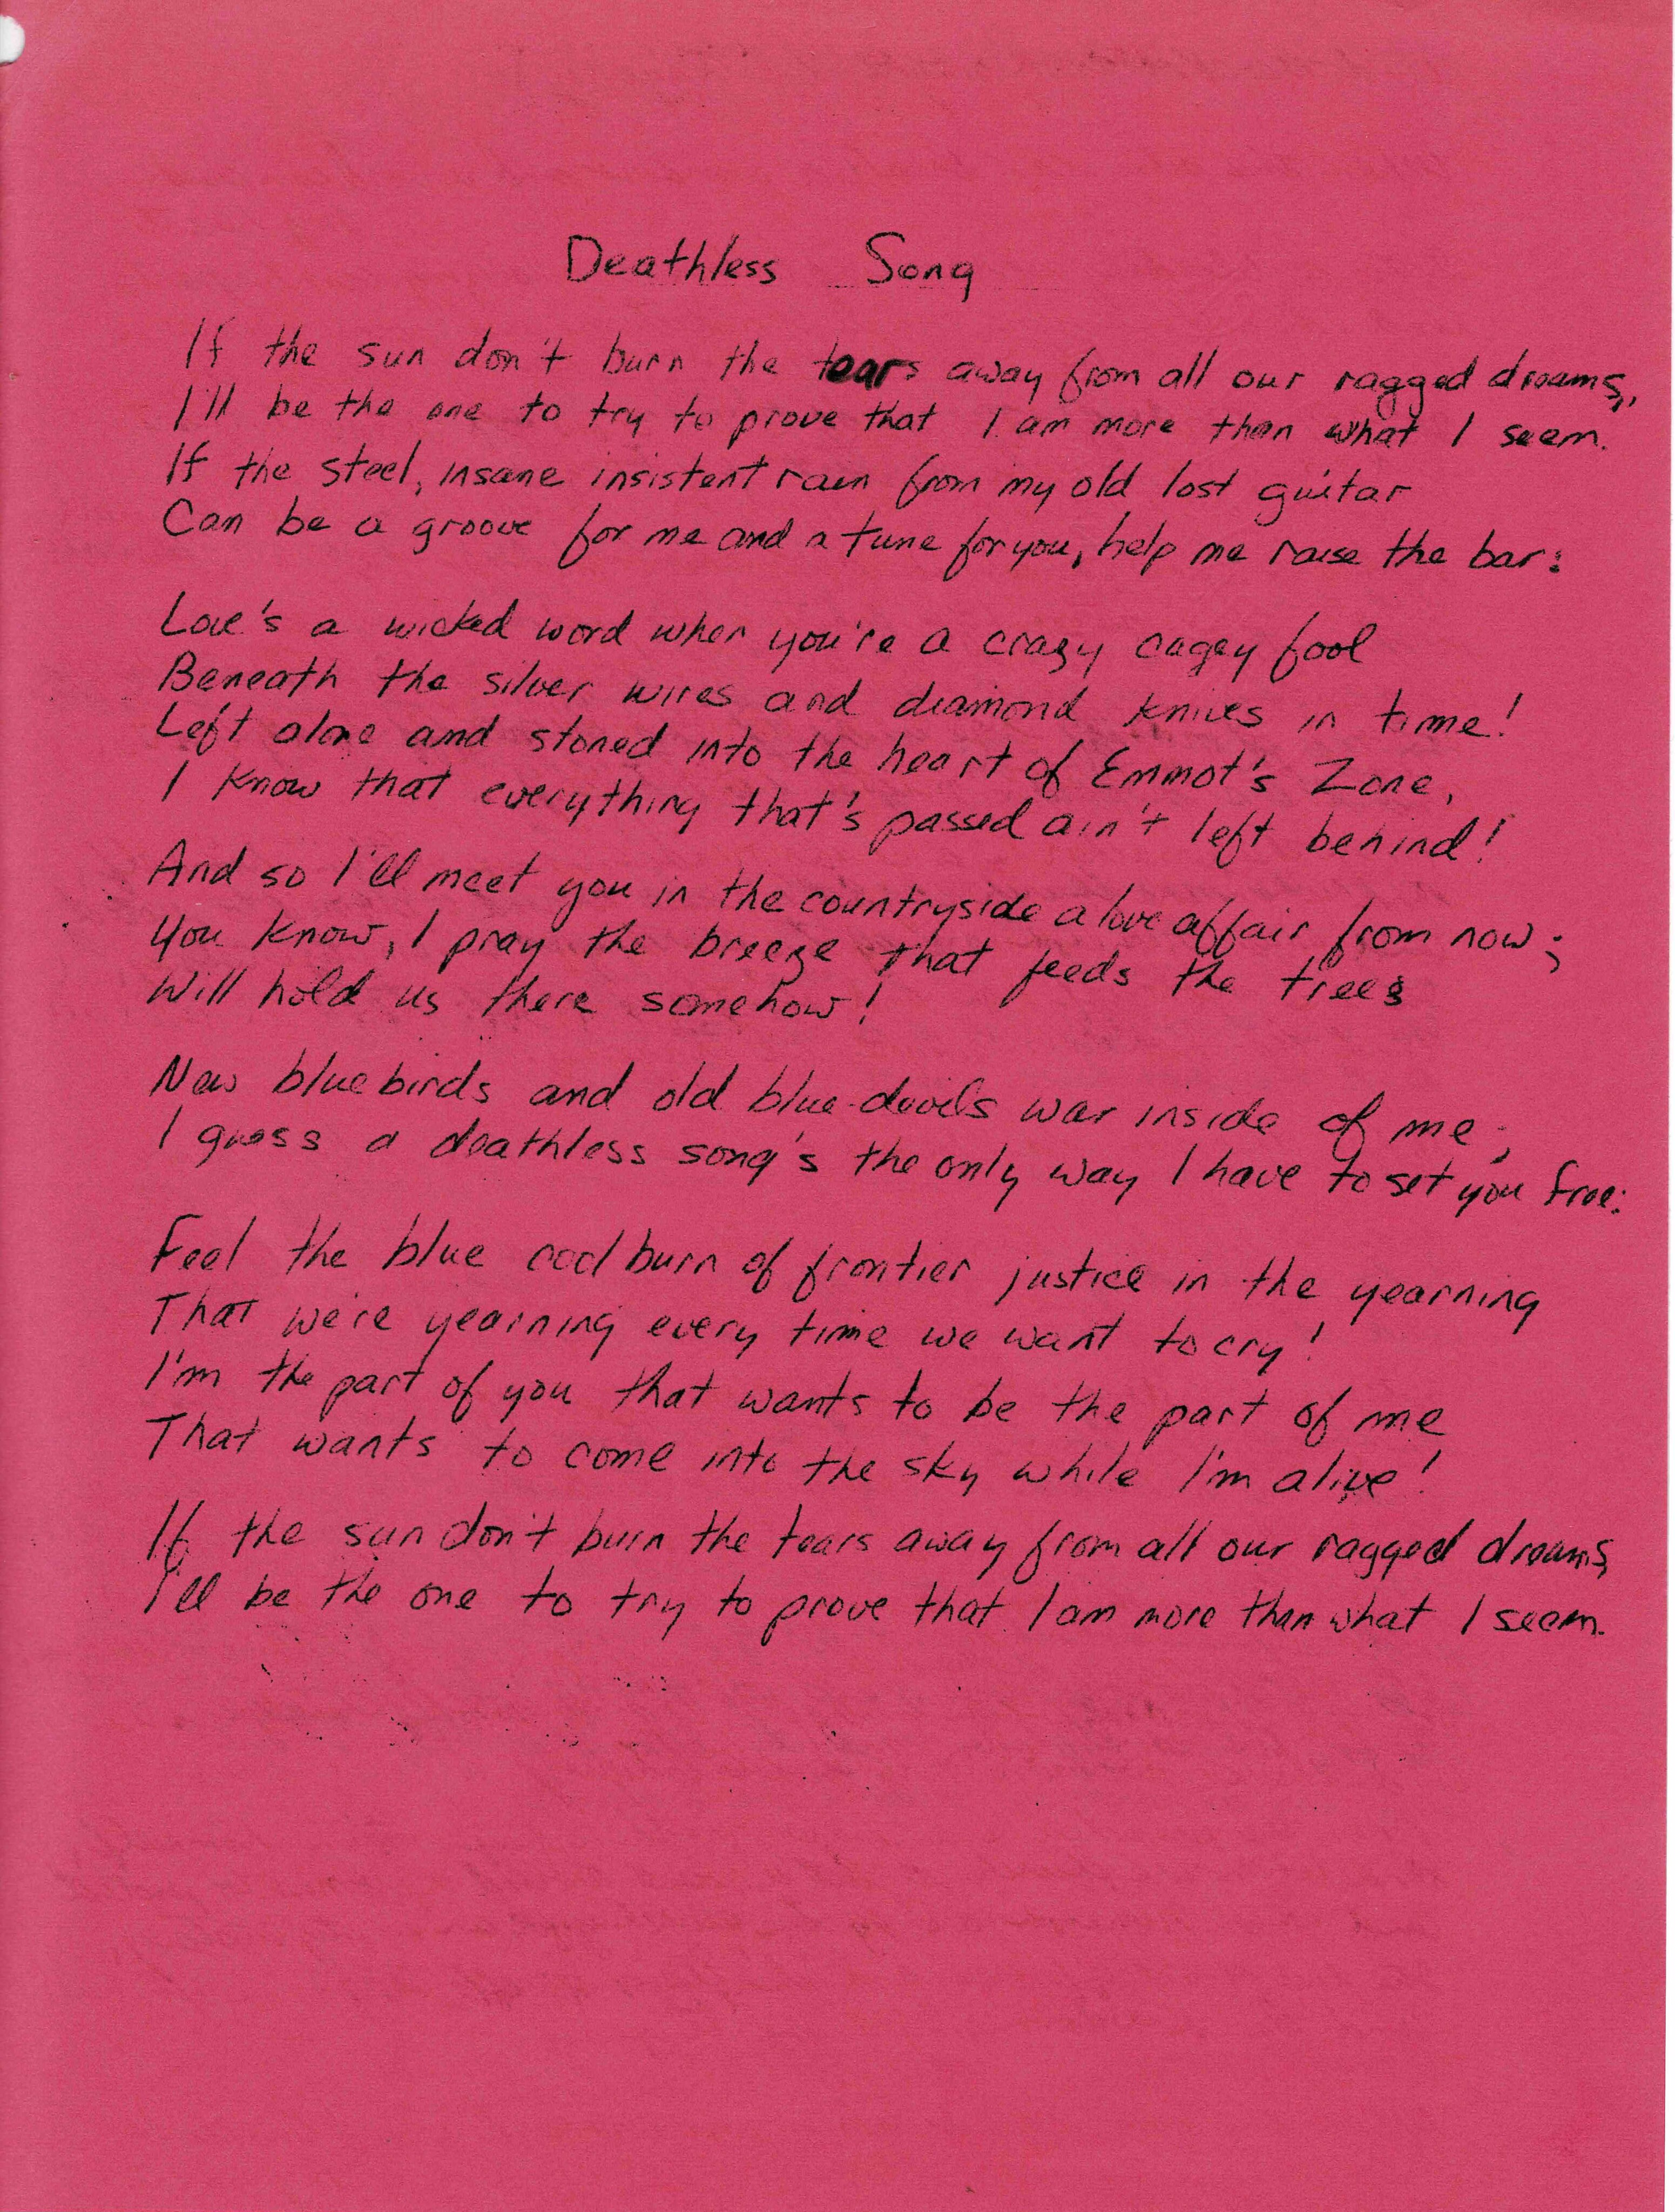 Deathless Song
If the sun don't burn the tears away from all our ragged dreams,
I'll be the one to try to prove that I am more than what I seem.
If the steel, insane insistent rain from my old lost guitar
Can be a groove for me and a tune for you, help me raise the bar:
Love's a wicked word when you're a crazy cagey fool
Beneath the silver wires and diamond knives in time!
Left alone and stoned into the heart of Emmot's Zone,
I know that everything that's passed ain't left behind!
And so I'll meet you in the countryside a love affair from now;
You know, I pray the breeze that feeds the trees
Will hold us there somehow!
New bluebirds and old blue devils war inside of me;
I guess a deathless song's the only way I have to set you free:
Feel the blue cool burn of frontier justice in the yearning
That we're yearning every time we want to cry!
I'm the part of you that wants to be the part of me
That wants to come into the sky while I'm alive!
If the sun don't burn the tears away from all our ragged dreams,
I'll be the one to try to prove that I am more than what I seem.